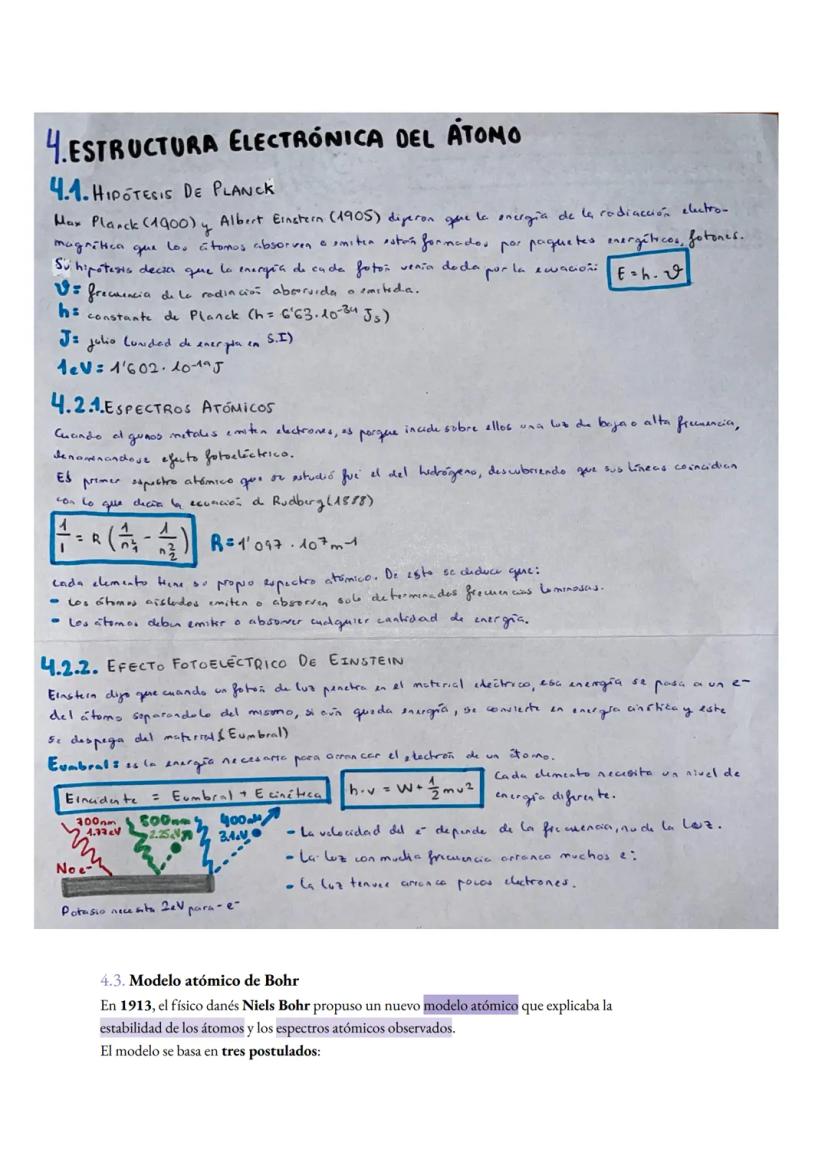 4.ESTRUCTURA ELECTRÓNICA DEL ÁTOMO
4.1. HIPÓTESIS DE PLANCK
Max Planck (1900) y Albert Einstein (1905) dijeron que la energía de la radiación electro-
magnética que los átomos absorven o emiten están formados por paquetes energéticos, fotones.
Su hipótesis decía que la energía de cada fotón venía dada por la ecuación: E = h · ν
ν = frecuencia de la radiación absorvida o emitida.
h = constante de Planck (h = 6'63 · 10⁻³⁴ Js)
J = julio (unidad de energía en S.I)
1eV = 1'602 · 10⁻¹⁹ J
4.2.1. ESPECTROS ATÓMICOS
Cuando algunos metales emiten electrones, es porque incide sobre ellos una luz de baja o alta frecuencia,
denominandose efecto fotoeléctrico.
El primer espectro atómico que se estudió fue el del hidrógeno, descubriendo que sus líneas coincidian
con lo que decía la ecuación d Rudberg (1888)
1/l = R (1/n₁² - 1/n₂²) R = 1'097 · 10⁷ m⁻¹
Cada elemento tiene su propio espectro atómico. De esto se deduce que:
- Los átomos aislados emiten o absorven solo determinadas frecuencias luminosas.
- Los átomos deben emitir o absorver cualquier cantidad de energía.
4.2.2. EFECTO FOTOELÉCTRICO DE EINSTEIN
Einstein dijo que cuando un fotón de luz penetra en el material eléctrico, esa energía se pasa a un e-
del átomo separandolo del mismo, si aún queda energía, se convierte en energía cinética y este
se despega del material (Eumbral)
Eumbral: es la energía necesaria para arrancar el electrón de un átomo.
Eincidente = Eumbral + E cinética h · v = W + ½ mv² Cada elemento necesita un nivel de
energía diferente.
700nm 500nm 400nm
1.77eV 2.25eV 3.1eV
- La velocidad del e⁻ depende de la frecuencia, no de la luz.
- La luz con mucha frecuencia arranca muchos e⁻.
No e-
- La luz tenue arranca pocos electrones.
Potasio necesita 2eV para - e⁻
4.3. Modelo atómico de Bohr
En 1913, el físico danés Niels Bohr propuso un nuevo modelo atómico que explicaba la
estabilidad de los átomos y los espectros atómicos observados.
El modelo se basa en tres postulados: